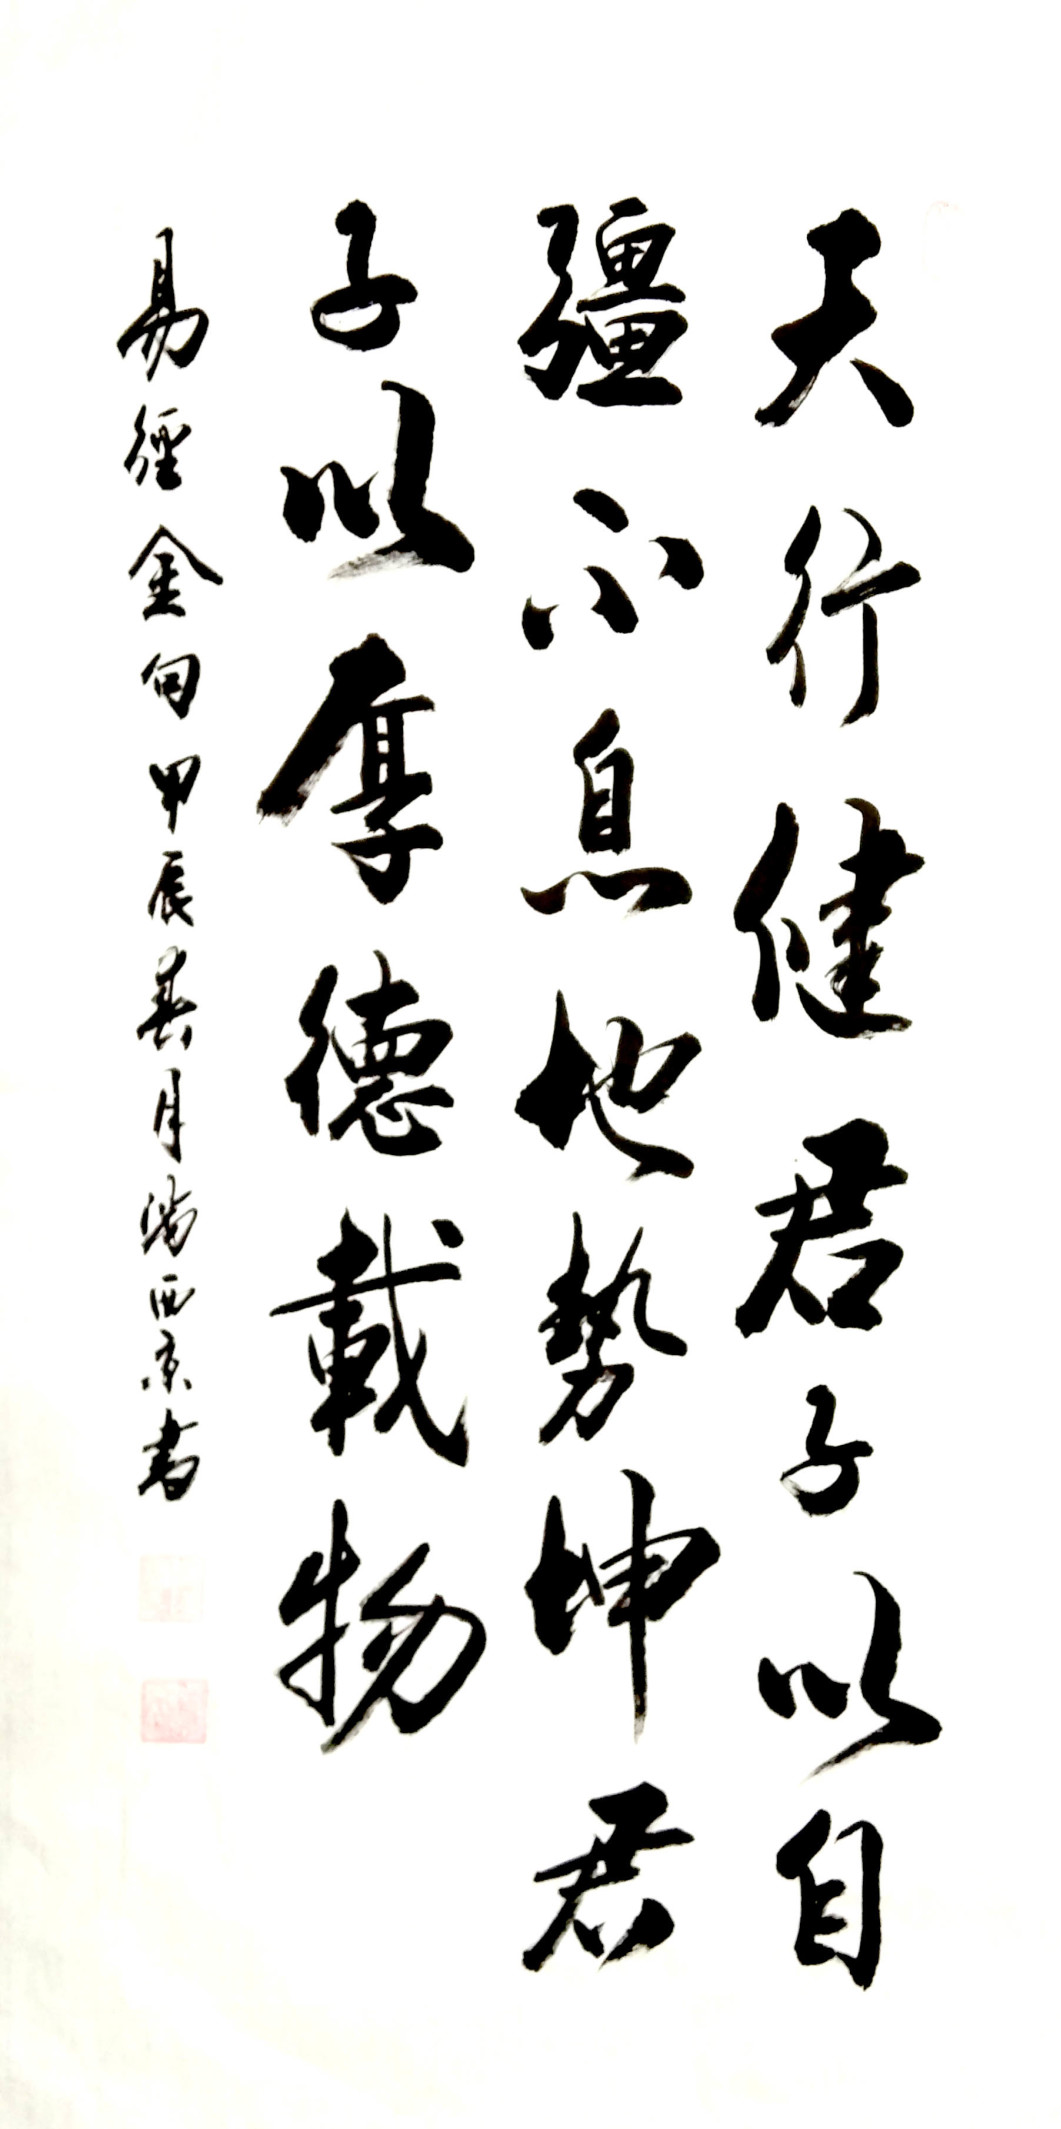 天行健君子以自
彊不息地勢坤君
子以厚德載物
易經金句甲辰春月湯西京書